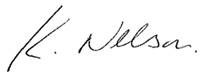 K. Nelson.